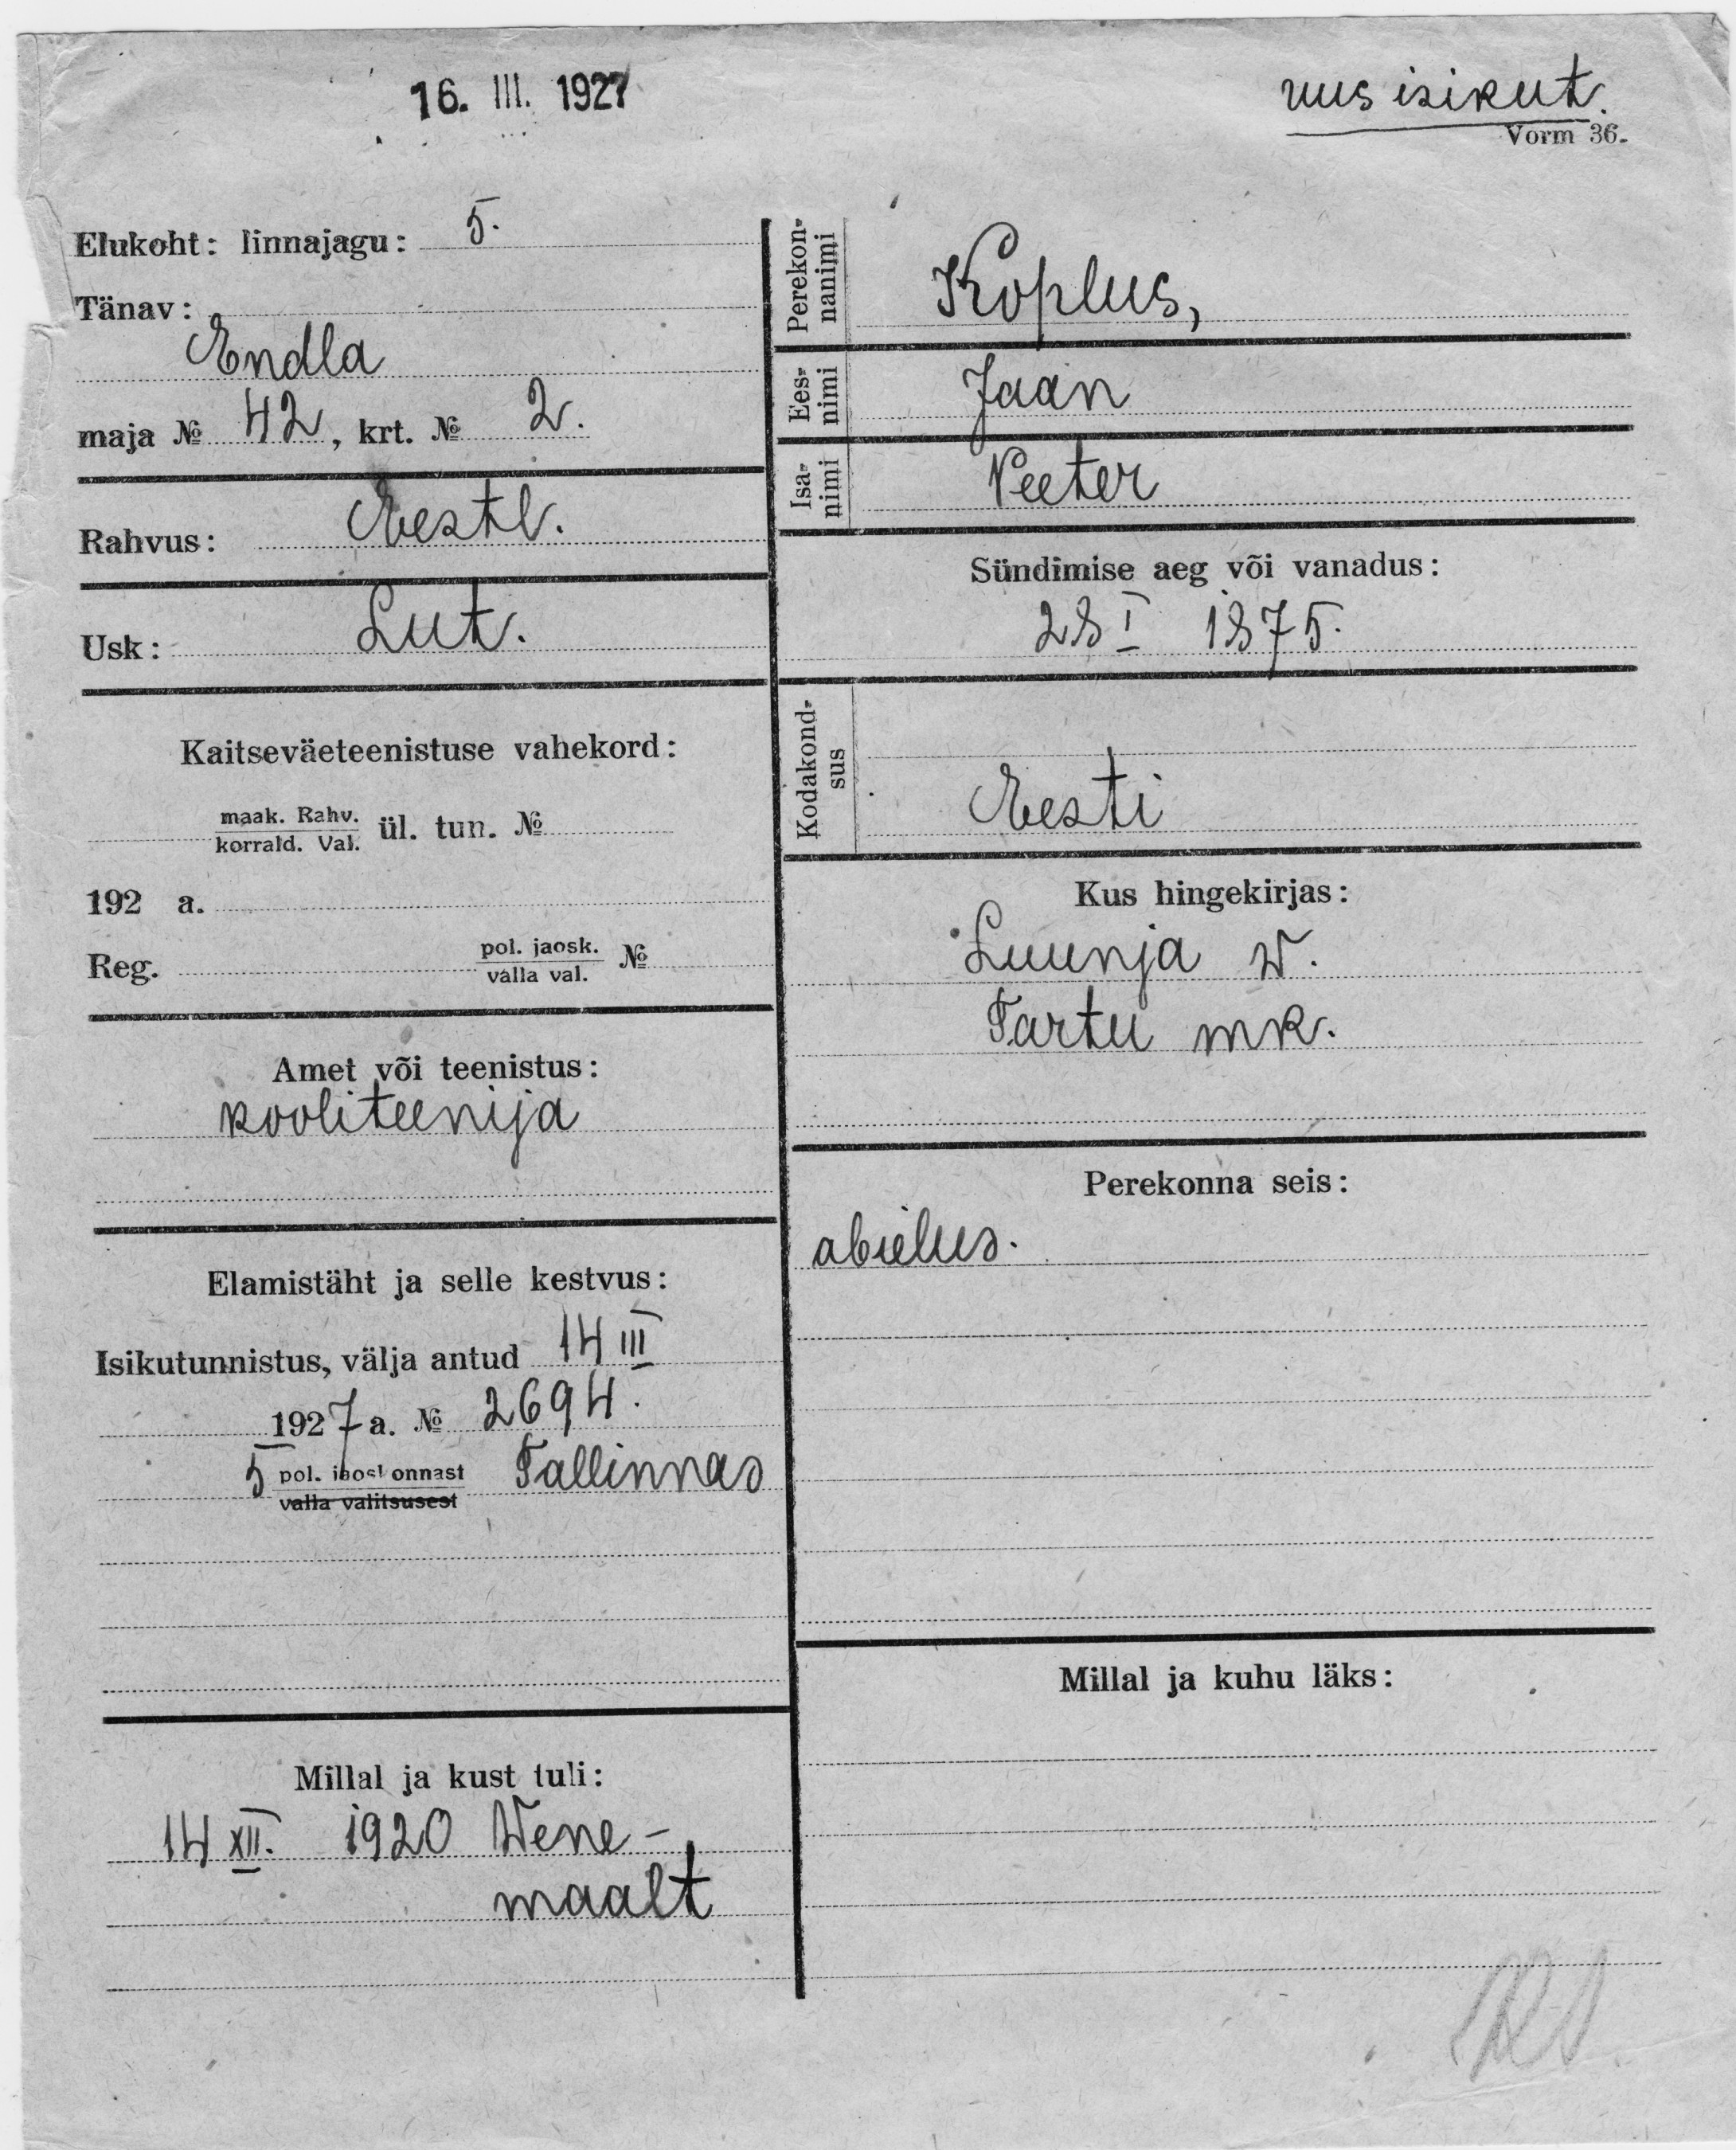 16. III. 1927
uus isikut.
Vorm 36.
Elukoht: linnajagu: 5.
Tänav:
Endla
maja № 42, krt. № 2.
Rahvus: Eestl.
Usk: Lut.
Kaitseväeteenistuse vahekord:
maak. Rahv.
korrald. Val. ül. tun. №
192 a.
Reg. pol. jaosk. №
valla val.
Amet või teenistus:
kooliteenija
Elamistäht ja selle kestvus:
Isikutunnistus, välja antud 14 III
1927 a. № 2694.
5 pol. jaoskonnast Tallinnas
valla valitsusest
Millal ja kust tuli:
14 XII. 1920 Wene-
maalt
Perekon-
nanimi
Koplus,
Ees-
nimi
Jaan
Isa-
nimi
Peeter
Sündimise aeg või vanadus:
28 I 1875.
Kodakond-
sus
Eesti
Kus hingekirjas:
Luunja w.
Tartu mk.
Perekonna seis:
abielus.
Millal ja kuhu läks: